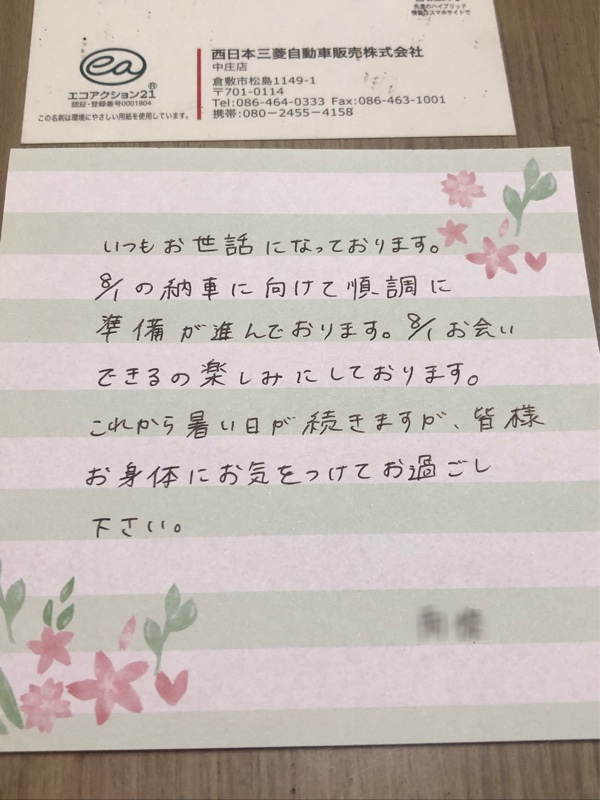 先進のハイブリッド
情報はスマホサイトで
ea
エコアクション21®
認証・登録番号0001804
この名刺は環境にやさしい用紙を使用しています。
西日本三菱自動車販売株式会社
中庄店
倉敷市松島1149-1
〒701-0114
Tel:086-464-0333 Fax:086-463-1001
携帯:080-2455-4158
いつもお世話になっております。
8/1の納車に向けて順調に
準備が進んでおります。8/1お会い
できるの楽しみにしております。
これから暑い日が続きますが、皆様
お身体にお気をつけてお過ごし
下さい。